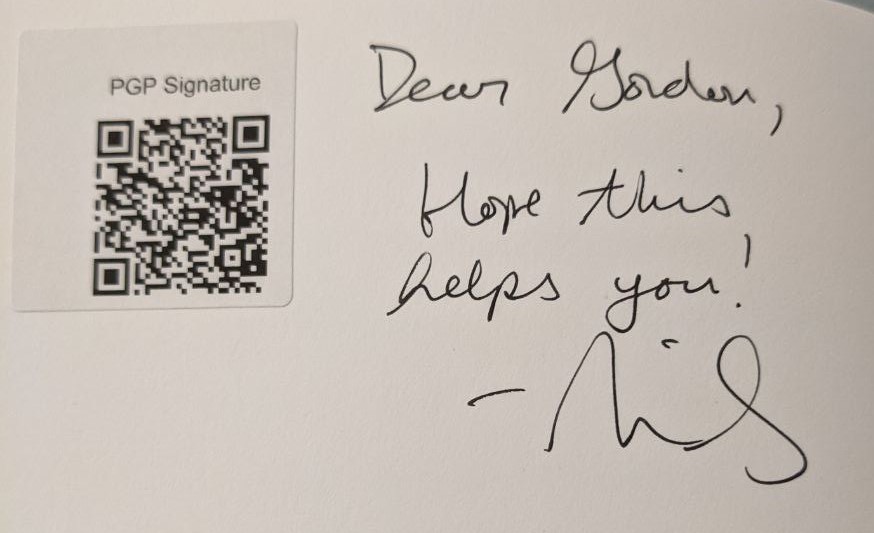 PGP Signature
Dear Gordon,
Hope this
helps you!